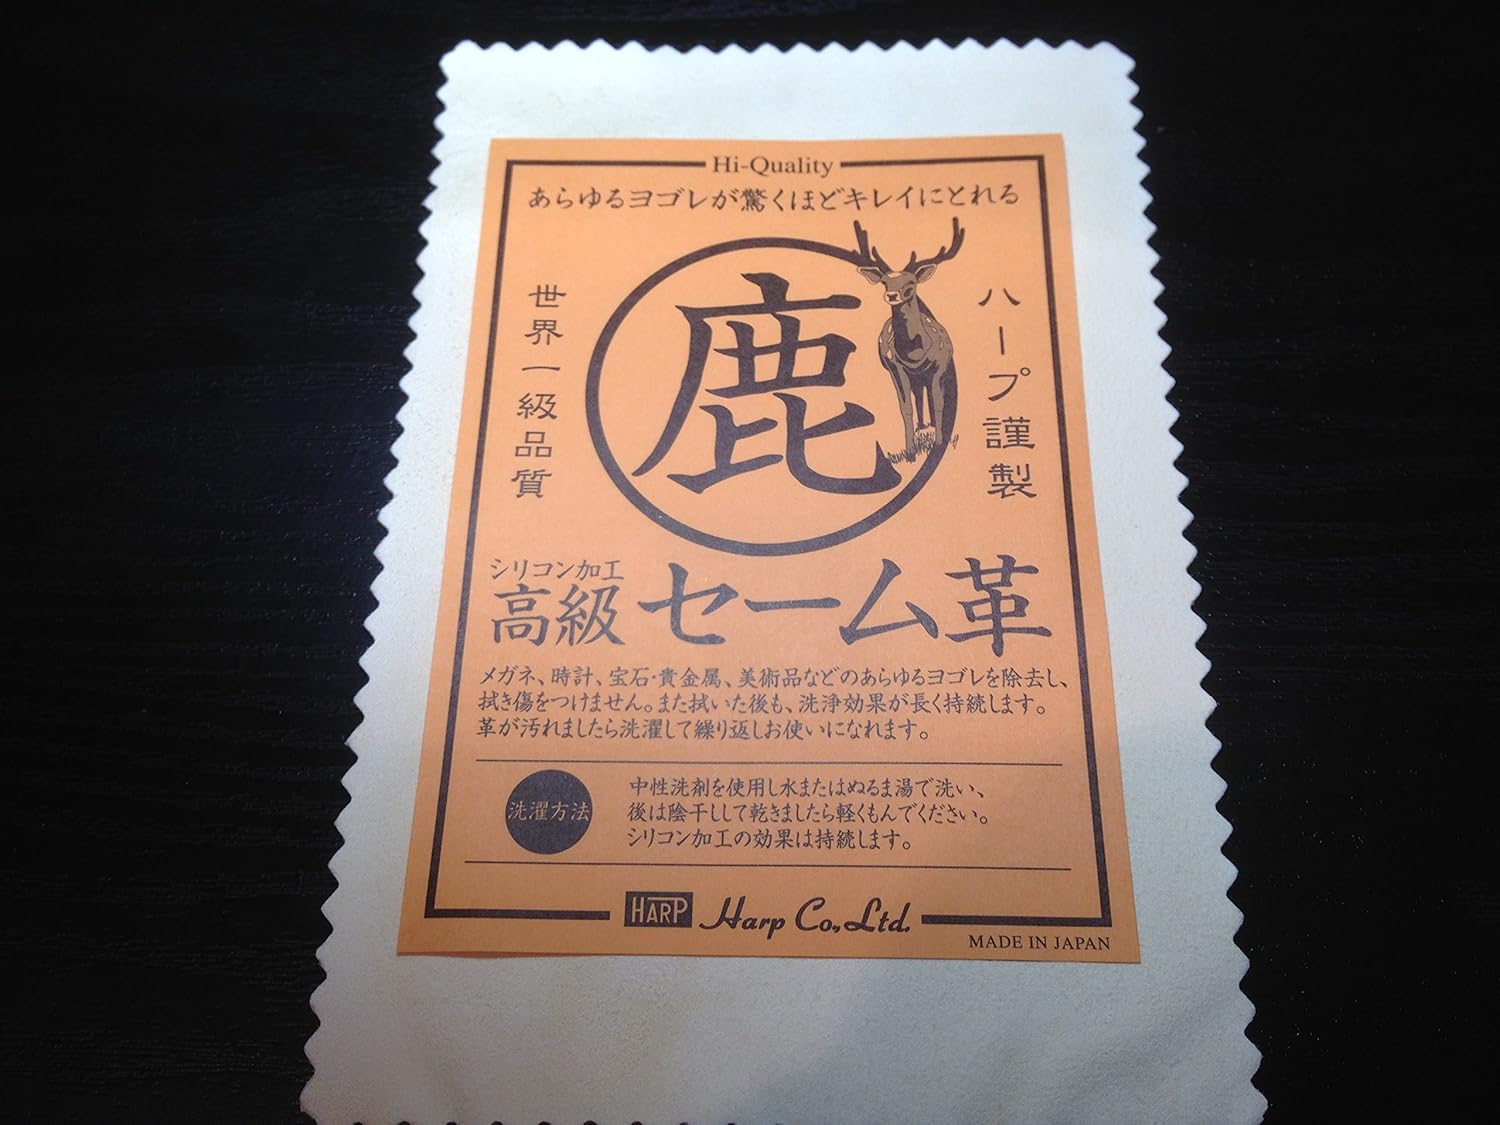 Hi-Quality
あらゆるヨゴレが驚くほどキレイにとれる
ハープ謹製
鹿
世界一級品質
シリコン加工
高級 セーム革
メガネ、時計、宝石・貴金属、美術品などのあらゆるヨゴレを除去し、
拭き傷をつけません。また拭いた後も、洗浄効果が長く持続します。
革が汚れましたら洗濯して繰り返しお使いになれます。
洗濯方法
中性洗剤を使用し水またはぬるま湯で洗い、
後は陰干しして乾きましたら軽くもんでください。
シリコン加工の効果は持続します。
HARP Harp Co., Ltd.
MADE IN JAPAN